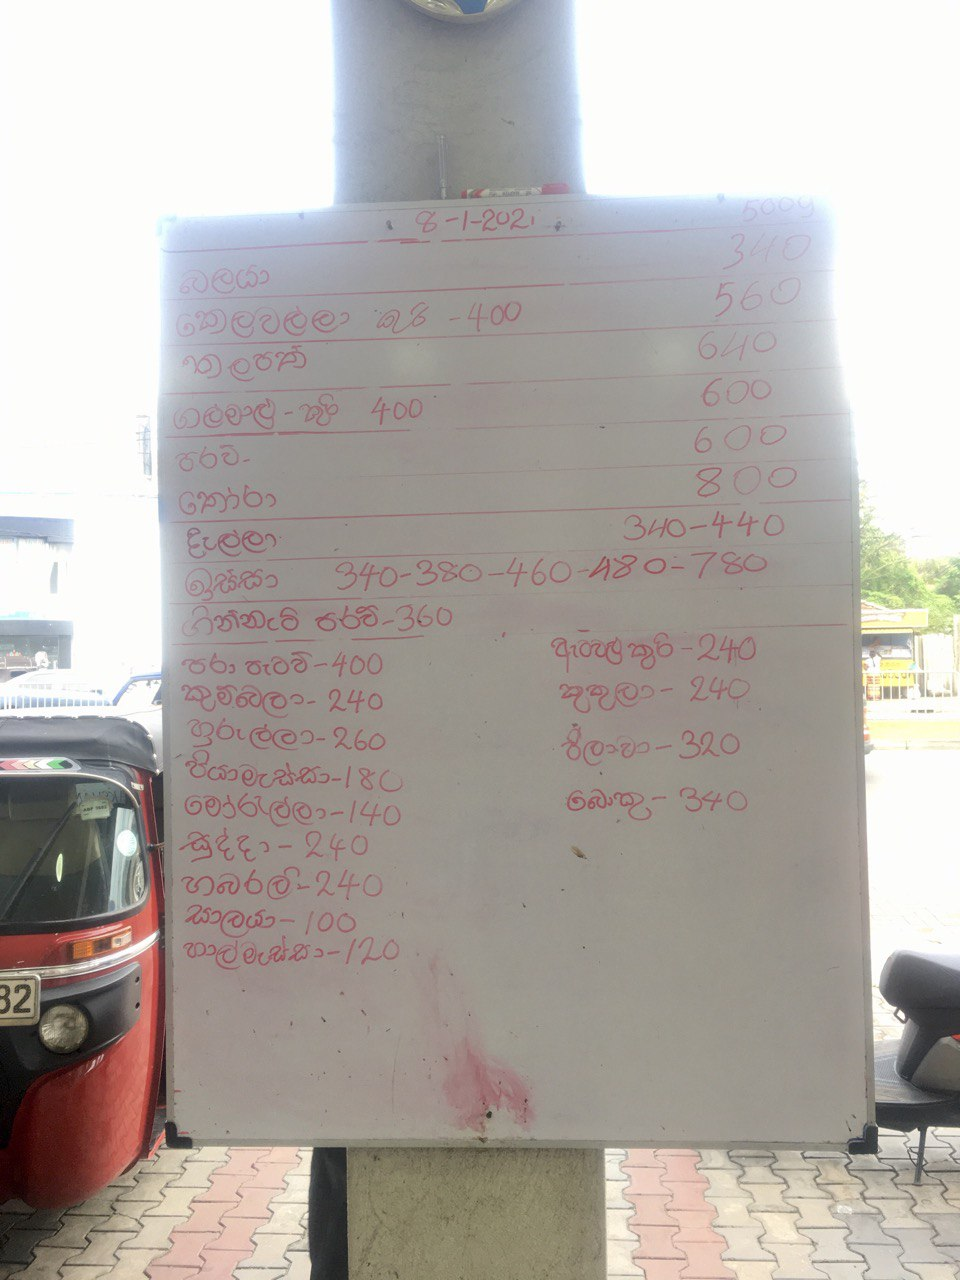 8-1-2021
500g
බලයා 340
කෙලවල්ලා කුරි - 400 560
තලපත් 640
ගල්මාළු - කුරි 400 600
පරව් - 600
තෝරා 800
දැල්ලා 340-440
ඉස්සා 340-380-460-480-780
ගින්නැටි පරව් - 360
පරා පැටව් - 400
කුම්බලා - 240
හුරුල්ලා - 260
පියාමැස්සා - 180
මෝරැල්ලා - 140
සුද්දා - 240
හබරලි - 240
සාලයා - 100
හාල්මැස්සා - 120
ඇටවලු කුරි - 240
කුකුලා - 240
ජීලාවා - 320
බොකු - 340
82